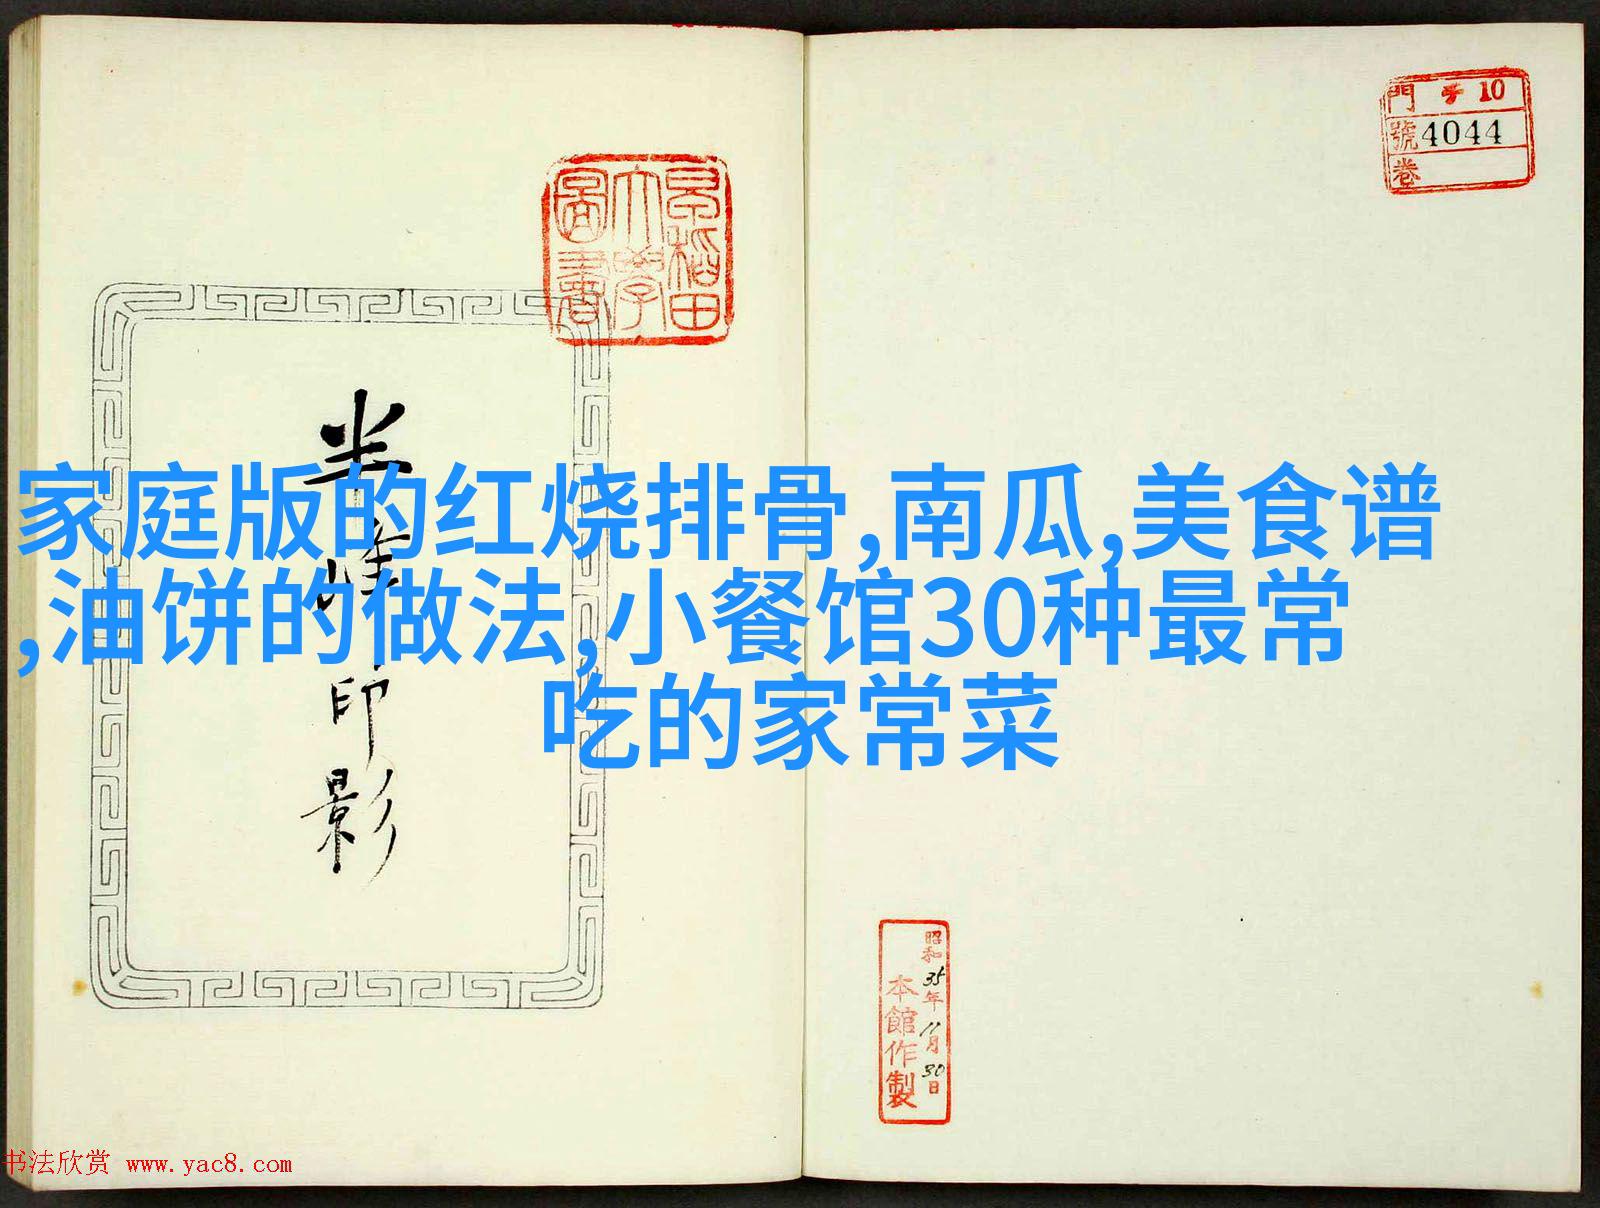 家庭版的红烧排骨,南瓜,美食谱
,油饼的做法,小餐馆30种最常
吃的家常菜
早稻田
大學
圖書
門 チ 10
號 4044
卷
印影
昭和35年11月30日
本館作製
书法欣赏 www.yac8.com